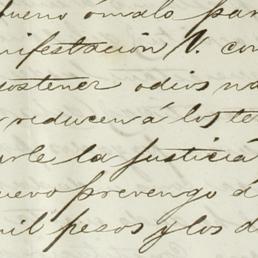 bueno ó malo par
nifestación V. con
sostener odios na
reducen á los te
arle la justicia
uevo prevengo á
mil pesos y los d